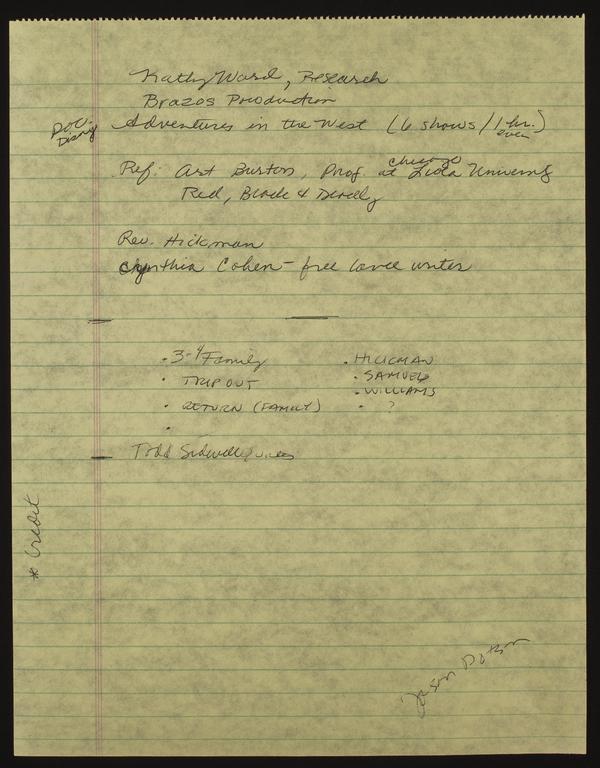 Kathy Ward, Research
Brazos Production
Doc.
Diary
Adventures in the West (6 shows / 1 hr.)
even
Ref: Art Burton, Prof. at Liola University
chicago
Red, Black & Deadly
Rev. Hickman
Cynthia Cohen - free lance writer
• 3-4 Family
• Trip out
• Return (Family)
•
• Hickman
• Samuel
• Williams
• ?
Todd Sidwell
* Credit
Jason Dotson